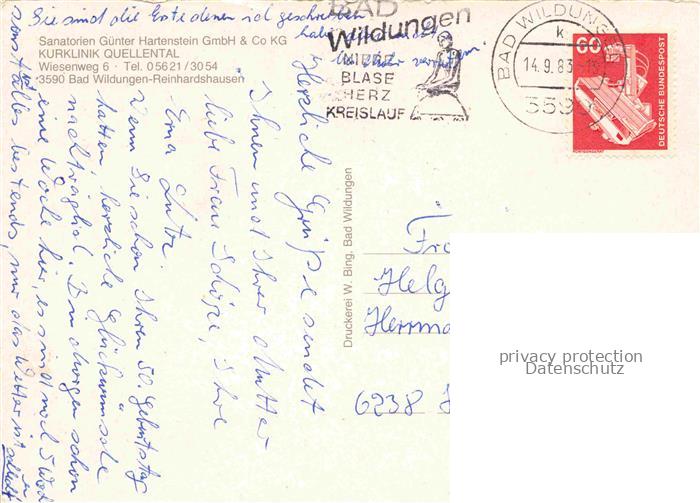 Sie sind die Erste denen ich geschrieben
habe
Sanatorien Günter Hartenstein GmbH & Co KG
KURKLINIK QUELLENTAL
Wiesenweg 6 · Tel. 05621/3054
3590 Bad Wildungen-Reinhardshausen
BAD
Wildungen
NIERE
BLASE
HERZ
KREISLAUF
BAD WILDUNGEN
14.9.83
3590
60
DEUTSCHE BUNDESPOST
Herzliche Grüße sendet
Ihnen und Ihrer Mutter
liebe Frau Schöpe, Ihre
Erna Lutz.
Wenn Sie schon Ihren 50. Geburtstag
hatten herzliche Glückwünsche
nachträglich. Bin morgen schon
eine Woche hier, es sind noch 5 Wochen
sonst alles bestens, nur das Wetter ist schlecht
Druckerei W. Bing, Bad Wildungen
Fra
Helg
Herrma
6238
privacy protection
Datenschutz